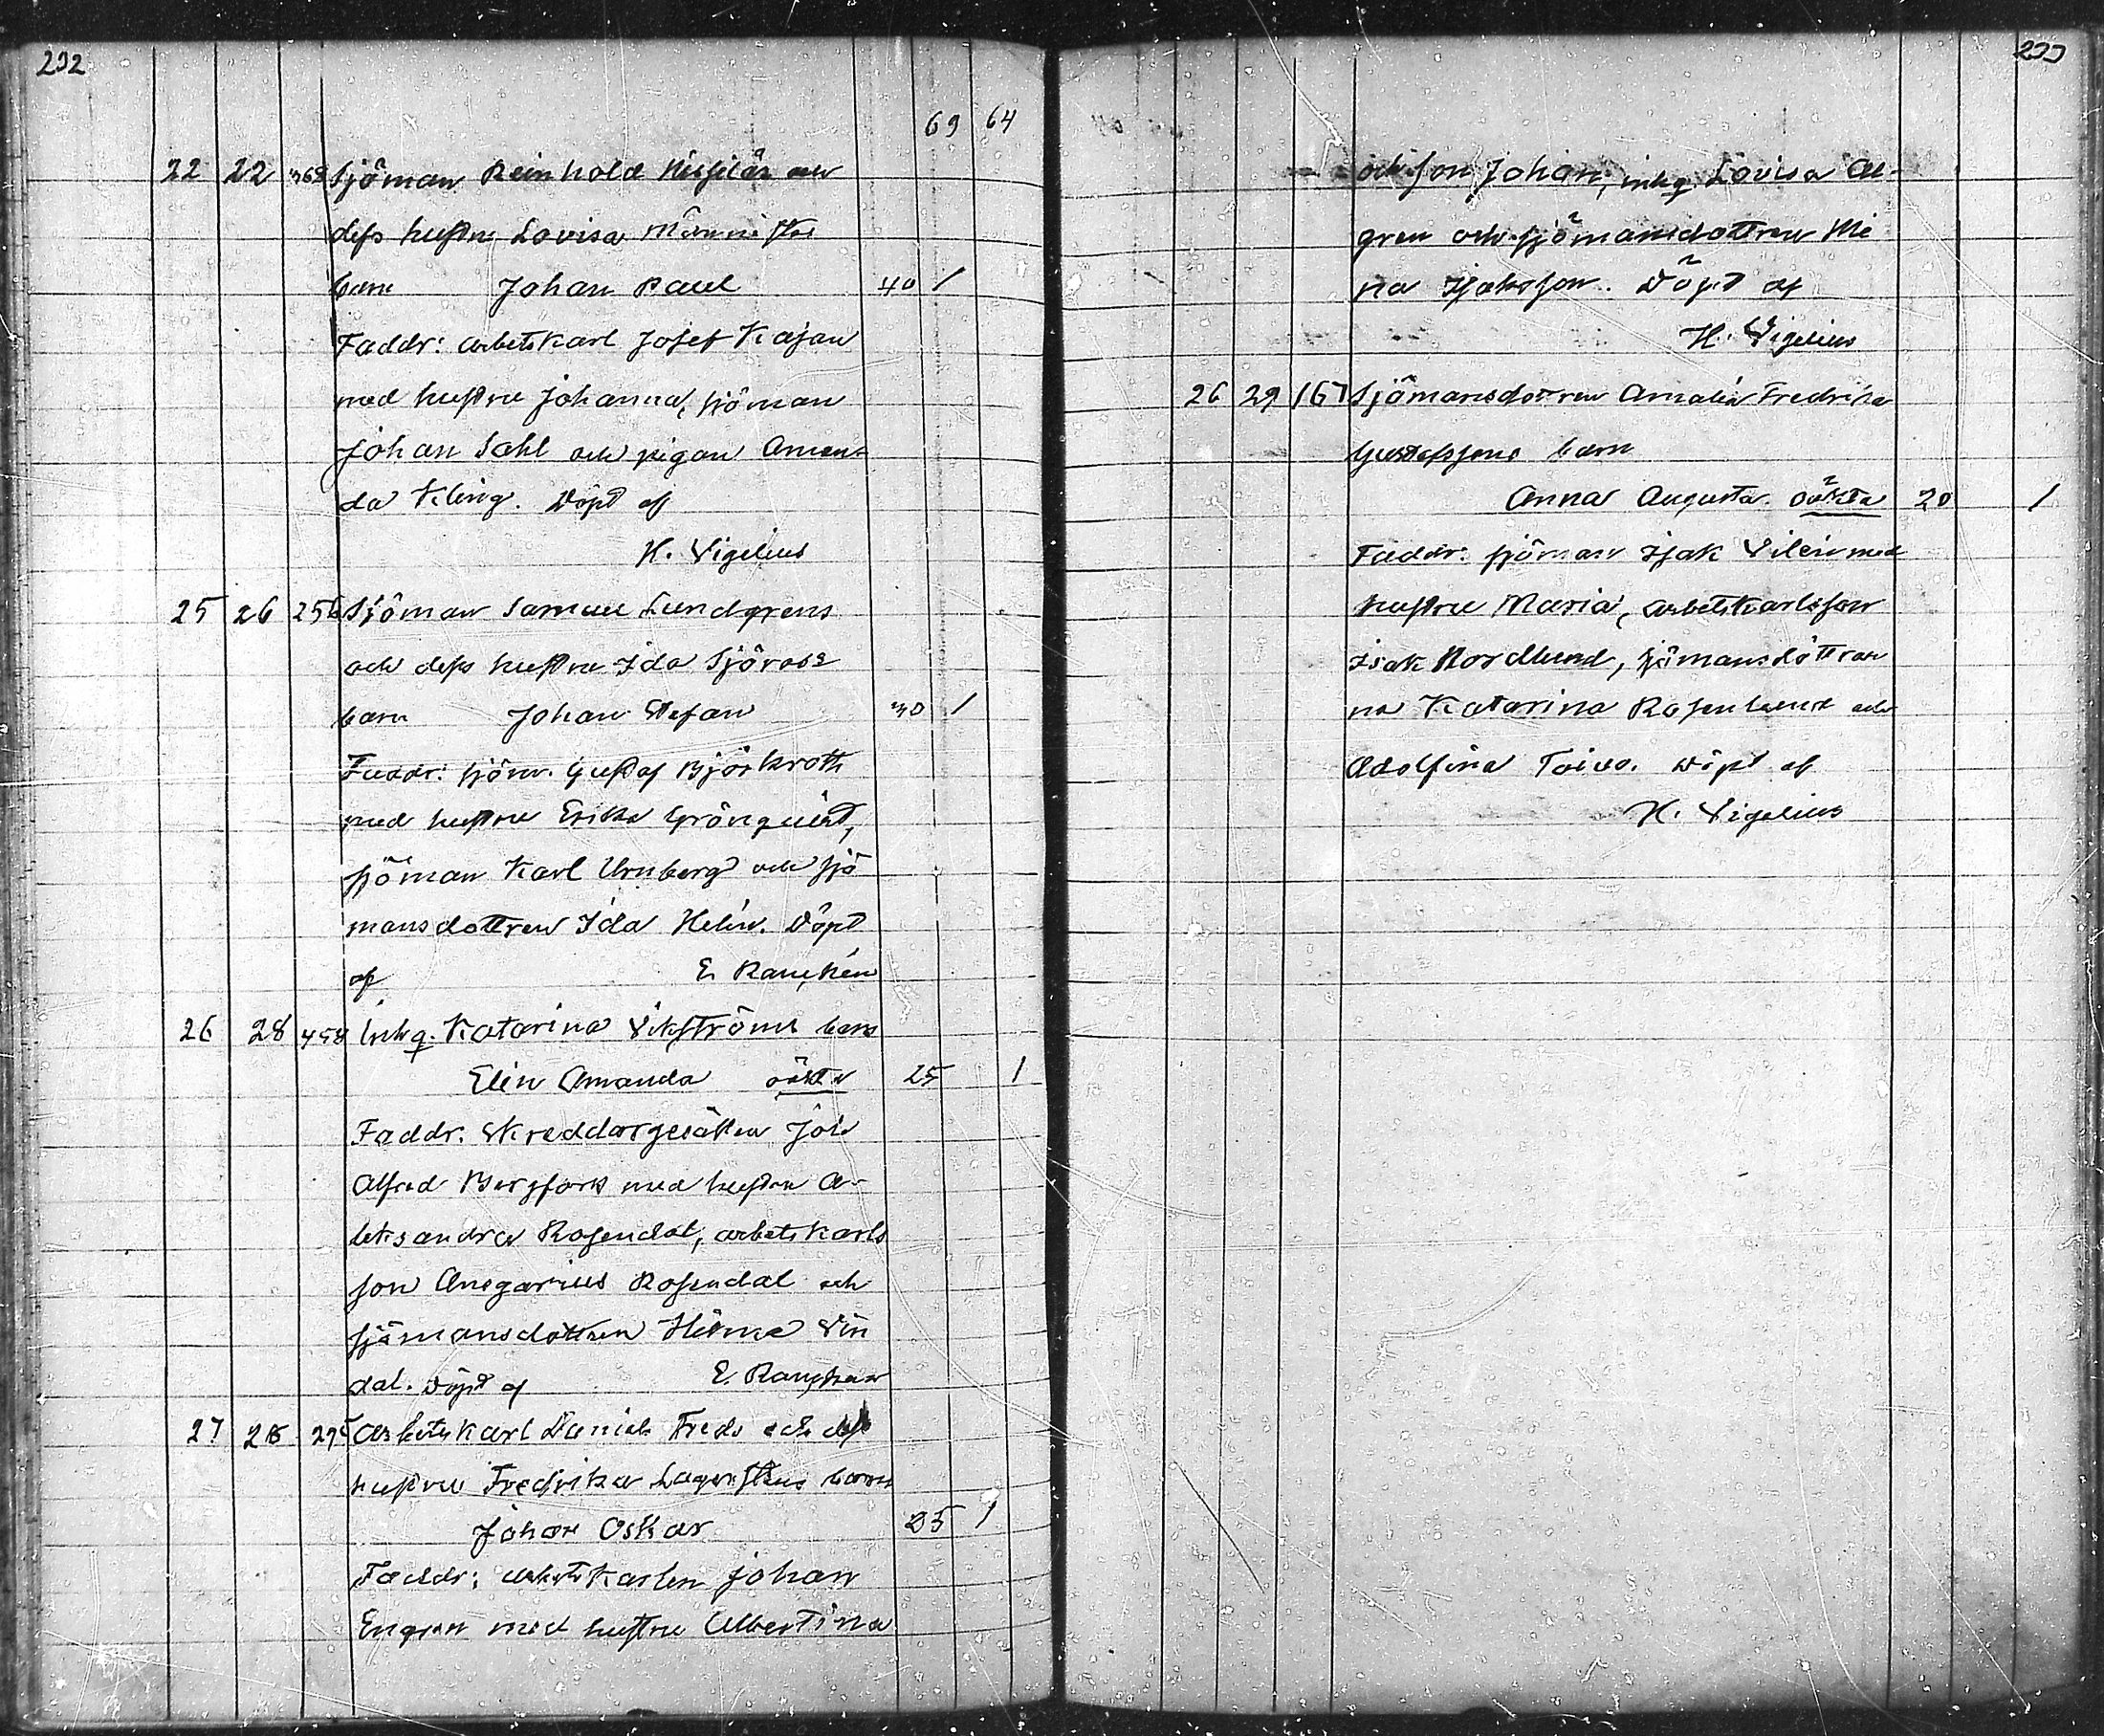 232
69 64
22 22 369 Sjöman Reinhold Nissilän och
dess hustru Lovisa Männistös
barn Johan Paul 40 1
Faddr: arbetskarl Josef Kajan
med hustru Johanna, sjöman
Johan Sahl och pigan Aman-
da Kling. Döpt af
H. Vigelius
25 26 256 Sjöman Samuel Lundgrens
och dess hustru Ida Sjöroos
barn Johan Stefan 30 1
Faddr: sjöm. Gustaf Björkroth
med hustru Erika Grönquist,
sjöman Karl Urnberg och sjö
mansdottren Ida Helin. Döpt
af E. Rancken
26 28 458 Inhq. Katarina Vikströms barn
Elin Amanda oäkta 25 1
Faddr: Skreddargesällen Joh
Alfred Bergfors med hustru A-
leksandra Rosendal, arbetskarls
son Ansgarius Rosendal och
sjömansdottren Hilma Vin
dal. Döpt af E. Rancken
27 28 295 Arbetskarl Daniel Freds och dess
hustru Fredrika Lagerstens barn
Johan Oskar 25 1
Faddr: arbetskarlen Johan
Engren med hustru Albertina
233
och son Johan, inhq. Lovisa Al-
gren och sjömansdottren Mi
na Isaksson. Döpt af
H. Vigelius
26 29 167 Sjömansdottren Amalia Fredrika
Gustafssons barn
Anna Augusta oäkta 20 1
Faddr: sjöman Isak Vilén med
hustru Maria, arbetskarlsson
Isak Nordlund, sjömansdöttrar
na Katarina Rosenlund och
Adolfina Toivo. Döpt af
H. Vigelius